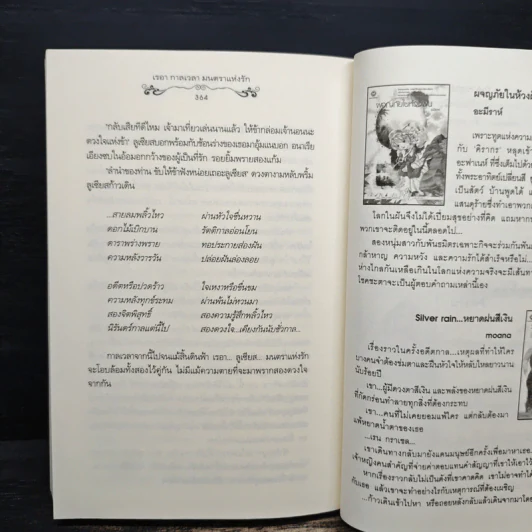 เรอา กาลเวลา มนตราแห่งรัก
364
"กลับเสียทีดีไหม เจ้ามาเที่ยวเล่นนานแล้ว ให้ข้ากล่อมเจ้านอนนะ
ดวงใจแห่งข้า" ลูเซียสบอกพร้อมกับช้อนร่างของเธอมาอุ้มแนบอก อนาเรีย
เอียงซบในอ้อมอกกว้างของผู้เป็นที่รัก รอยยิ้มพรายสองแก้ม
"ลำนำของท่าน ขับให้ข้าฟังหน่อยเถอะลูเซียส" ดวงตางามหลับพริ้ม
ลูเซียสก้าวเดิน
...สายลมพลิ้วไหว ผ่านหัวใจชื่นหวาน
ดอกไม้เบิกบาน รัตติกาลอ่อนโยน
ดาราพร่างพราย ทอประกายส่องฝัน
ความหลังวารวัน ปล่อยฝันล่องลอย
อดีตหรือปวดร้าว ใจเหงาหรือขื่นขม
ความหลังทุกข์ระทม ผ่านพ้นไม่หวนมา
สองจิตพิสุทธิ์ สองความรู้สึกพลิ้วไหว
นิรันดร์กาลแต่นี้ไป สองดวงใจ...เคียงกันนับชั่วกาล...
กาลเวลาจากนี้ไปจนแม้สิ้นดินฟ้า เรอา... ลูเซียส... มนตราแห่งรัก
จะโอบล้อมทั้งสองไว้คู่กัน ไม่มีแม้ความตายที่จะมาพรากสองดวงใจ
จากกัน
ผจญภัยในห้วงฝัน
อะมีราห์
เพราะทูตแห่งความ
กับ "คิรากร" หลุดเข้า
อะฟาเนห์ ที่ซึ่งเต็มไปด้วย
ทั้งพระอาทิตย์เปลี่ยนสี
เป็นสัตว์ บ้านพูดได้
แสนดุร้ายซึ่งทำเอาพวก
โลกในฝันจึงไม่ได้เปี่ยมสุขอย่างที่คิด แถมหาก
พวกเขาจะติดอยู่ในนี้ตลอดไป...
สองหนุ่มสาวกับพันธมิตรเฉพาะกิจจะร่วมกันฟันฝ่า
กล้าหาญ ความหวัง และความรักได้สำเร็จหรือไม่...
ห่างไกลกันเหลือเกินในโลกแห่งความจริงจะมีเส้นทาง
โชคชะตาจะเป็นผู้ตอบคำถามเหล่านี้เอง
Silver rain...หยาดฝนสีเงิน
moana
เรื่องราวในครั้งอดีตกาล...เหตุผลที่ทำให้ใคร
บางคนจำต้องข่มตาและฝืนหัวใจให้หลับใหลยาวนาน
นับร้อยปี
เขา...ผู้มีดวงตาสีเงิน และพลังของหยาดฝนสีเงิน
ที่กัดกร่อนทำลายทุกสิ่งที่ต้องกระทบ
เขา...คนที่ไม่เคยยอมแพ้ใคร แต่กลับต้องมา
แพ้หยาดน้ำตาของเธอ
...เรน กราเซล...
เขาเดินทางกลับมายังแดนมนุษย์อีกครั้งเพื่อมาหาเธอ
เจ้าหญิงคนสำคัญที่จ่ายค่าตอบแทนคำสัญญาที่เขาให้เอาไว้
หากเรื่องราวกลับไม่เป็นดังที่เขาคาดคิด เขาไม่อาจ
กับเธอ แล้วเขาจะทำอย่างไรกับเหตุการณ์ที่ต้องเผชิญ
...ก้าวเดินเข้าไปหา หรือถอยหลังกลับแล้วเดินจากมา